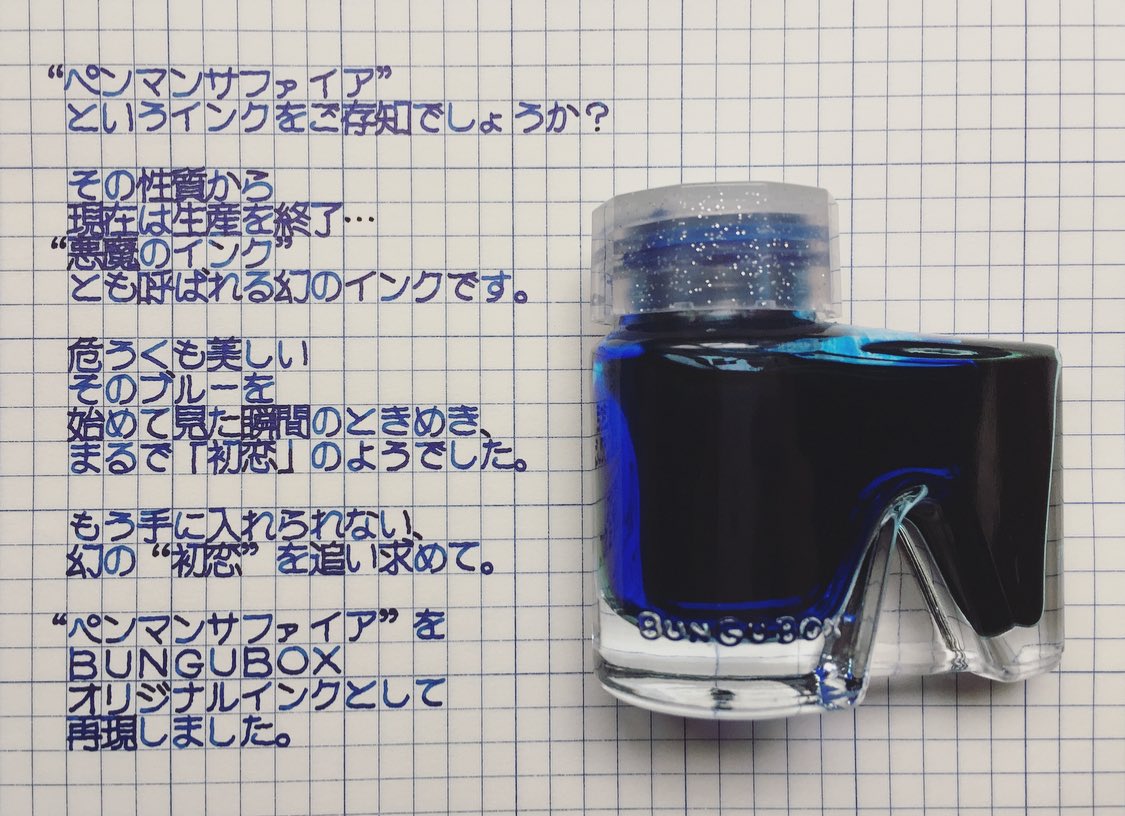 “ペンマンサファイア”
というインクをご存知でしょうか？
その性質から
現在は生産を終了…
“悪魔のインク”
とも呼ばれる幻のインクです。
危うくも美しい
そのブルーを
始めて見た瞬間のときめき、
まるで「初恋」のようでした。
もう手に入れられない、
幻の“初恋”を追い求めて。
“ペンマンサファイア”を
BUNGUBOX
オリジナルインクとして
再現しました。
BUNGUBOX